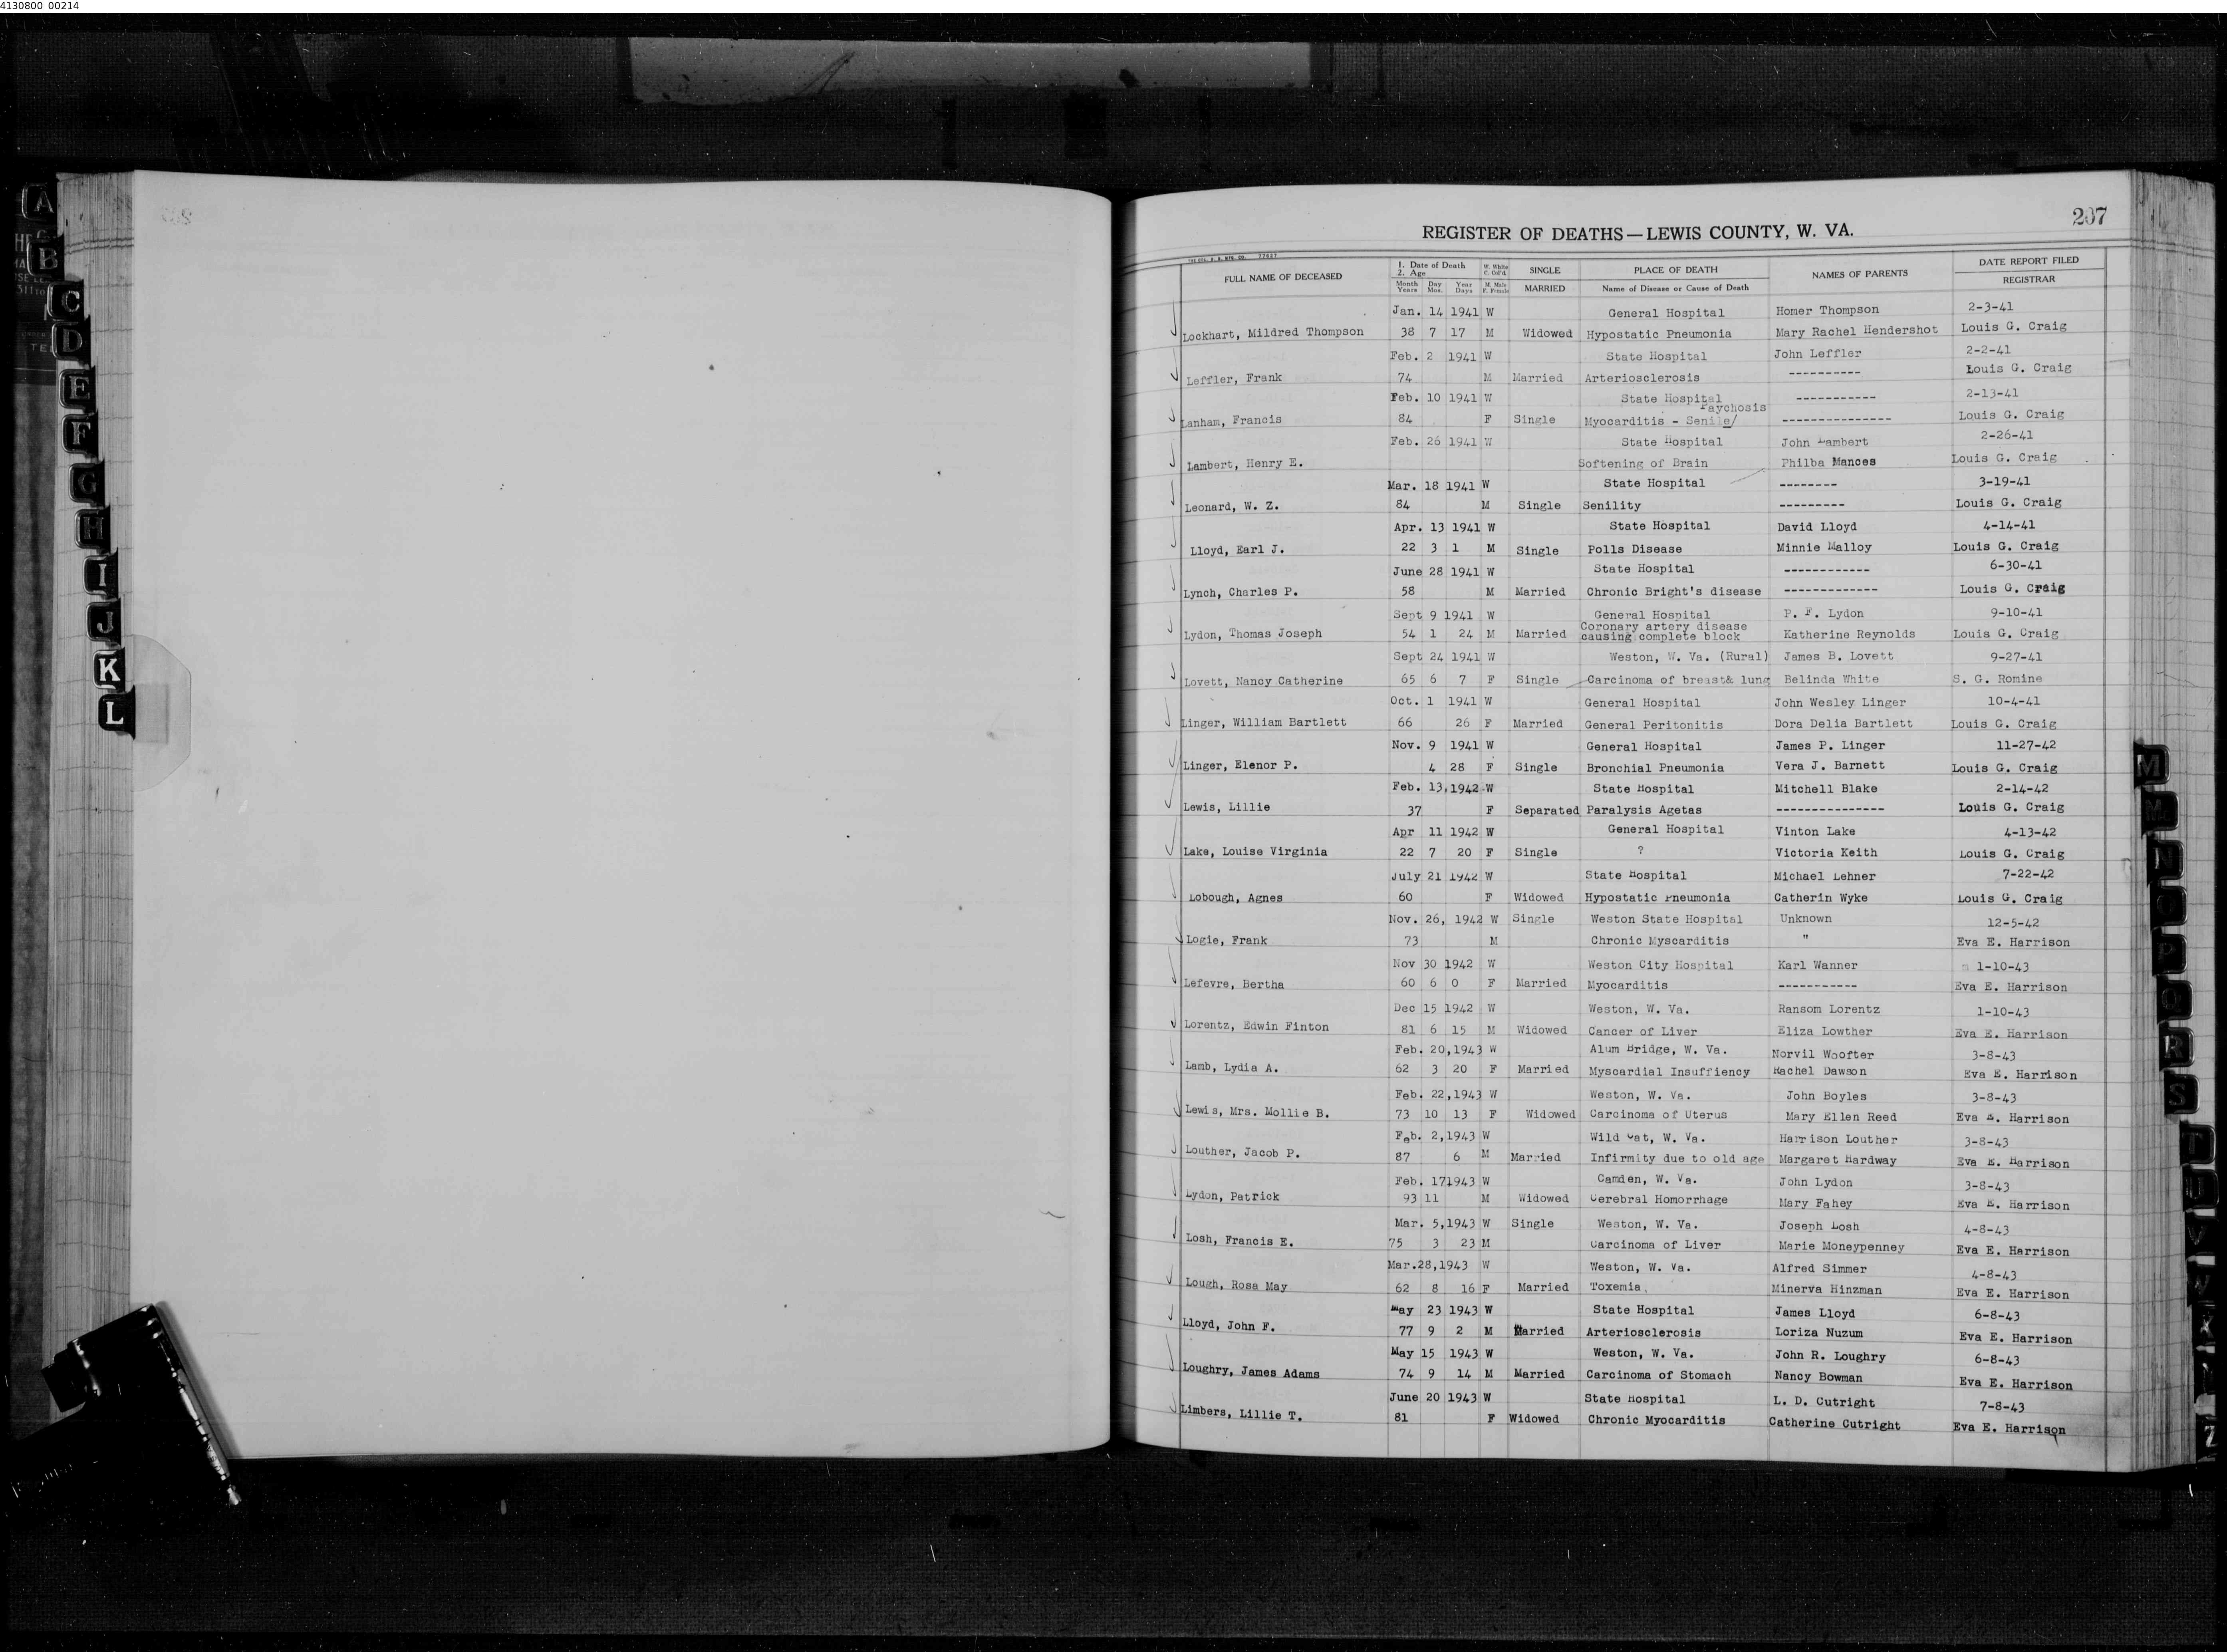 4130800_00214
207
REGISTER OF DEATHS—LEWIS COUNTY, W. VA.
FULL NAME OF DECEASED 1. Date of Death 2. Age Month Years Day Mos. Year Days W. White C. Col'd. M. Male F. Female SINGLE MARRIED PLACE OF DEATH Name of Disease or Cause of Death NAMES OF PARENTS DATE REPORT FILED REGISTRAR
Jan. 14 1941 W General Hospital Homer Thompson 2-3-41
Lockhart, Mildred Thompson 38 7 17 M Widowed Hypostatic Pneumonia Mary Rachel Hendershot Louis G. Craig
Feb. 2 1941 W State Hospital John Leffler 2-2-41
Leffler, Frank 74 M Married Arteriosclerosis ---------- Louis G. Craig
Feb. 10 1941 W State Hospital ----------- 2-13-41
Psychosis
Lanham, Francis 84 F Single Myocarditis - Senile/ --------------- Louis G. Craig
Feb. 26 1941 W State Hospital John Lambert 2-26-41
Lambert, Henry E. Softening of Brain Philba Mances Louis G. Craig
Mar. 18 1941 W State Hospital -------- 3-19-41
Leonard, W. Z. 84 M Single Senility --------- Louis G. Craig
Apr. 13 1941 W State Hospital David Lloyd 4-14-41
Lloyd, Earl J. 22 3 1 M Single Polls Disease Minnie Malloy Louis G. Craig
June 28 1941 W State Hospital ------------ 6-30-41
Lynch, Charles P. 58 M Married Chronic Bright's disease ------------- Louis G. Craig
Sept 9 1941 W General Hospital P. F. Lydon 9-10-41
Coronary artery disease
Lydon, Thomas Joseph 54 1 24 M Married causing complete block Katherine Reynolds Louis G. Craig
Sept 24 1941 W Weston, W. Va. (Rural) James B. Lovett 9-27-41
Lovett, Nancy Catherine 65 6 7 F Single Carcinoma of breast& lung Belinda White S. G. Romine
Oct. 1 1941 W General Hospital John Wesley Linger 10-4-41
Linger, William Bartlett 66 26 F Married General Peritonitis Dora Delia Bartlett Louis G. Craig
Nov. 9 1941 W General Hospital James P. Linger 11-27-42
Linger, Elenor P. 4 28 F Single Bronchial Pneumonia Vera J. Barnett Louis G. Craig
Feb. 13, 1942 W State Hospital Mitchell Blake 2-14-42
Lewis, Lillie 37 F Separated Paralysis Agetas --------------- Louis G. Craig
Apr 11 1942 W General Hospital Vinton Lake 4-13-42
Lake, Louise Virginia 22 7 20 F Single ? Victoria Keith Louis G. Craig
July 21 1942 W State Hospital Michael Lehner 7-22-42
Lobough, Agnes 60 F Widowed Hypostatic Pneumonia Catherin Wyke Louis G. Craig
Nov. 26, 1942 W Single Weston State Hospital Unknown 12-5-42
Logie, Frank 73 M Chronic Myscarditis " Eva E. Harrison
Nov 30 1942 W Weston City Hospital Karl Wanner 1-10-43
Lefevre, Bertha 60 6 0 F Married Myocarditis ----------- Eva E. Harrison
Dec 15 1942 W Weston, W. Va. Ransom Lorentz 1-10-43
Lorentz, Edwin Finton 81 6 15 M Widowed Cancer of Liver Eliza Lowther Eva E. Harrison
Feb. 20,1943 W Alum Bridge, W. Va. Norvil Woofter 3-8-43
Lamb, Lydia A. 62 3 20 F Married Myscardial Insuffiency Rachel Dawson Eva E. Harrison
Feb. 22,1943 W Weston, W. Va. John Boyles 3-8-43
Lewis, Mrs. Mollie B. 73 10 13 F Widowed Carcinoma of Uterus Mary Ellen Reed Eva E. Harrison
Feb. 2,1943 W Wild Cat, W. Va. Harrison Louther 3-8-43
Louther, Jacob P. 87 6 M Married Infirmity due to old age Margaret Hardway Eva E. Harrison
Feb. 17 1943 W Camden, W. Va. John Lydon 3-8-43
Lydon, Patrick 93 11 M Widowed Cerebral Homorrhage Mary Fahey Eva E. Harrison
Mar. 5,1943 W Single Weston, W. Va. Joseph Losh 4-8-43
Losh, Francis E. 75 3 23 M Carcinoma of Liver Marie Moneypenney Eva E. Harrison
Mar.28,1943 W Weston, W. Va. Alfred Simmer 4-8-43
Lough, Rosa May 62 8 16 F Married Toxemia Minerva Hinzman Eva E. Harrison
May 23 1943 W State Hospital James Lloyd 6-8-43
Lloyd, John F. 77 9 2 M Married Arteriosclerosis Loriza Nuzum Eva E. Harrison
May 15 1943 W Weston, W. Va. John R. Loughry 6-8-43
Loughry, James Adams 74 9 14 M Married Carcinoma of Stomach Nancy Bowman Eva E. Harrison
June 20 1943 W State Hospital L. D. Cutright 7-8-43
Limbers, Lillie T. 81 F Widowed Chronic Myocarditis Catherine Cutright Eva E. Harrison
A
B
C
D
E
F
G
H
I
J
K
L
M
N
O
P
Q
R
S
T
U
V
Z